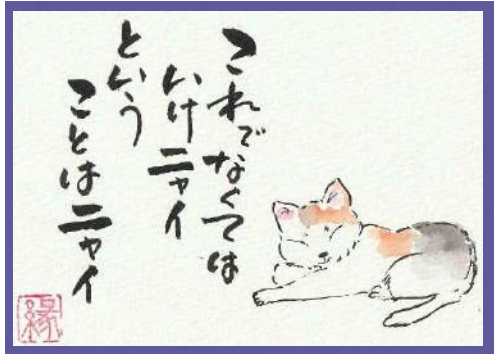 これでなくては
いけニャイ
という
ことはニャイ
縁